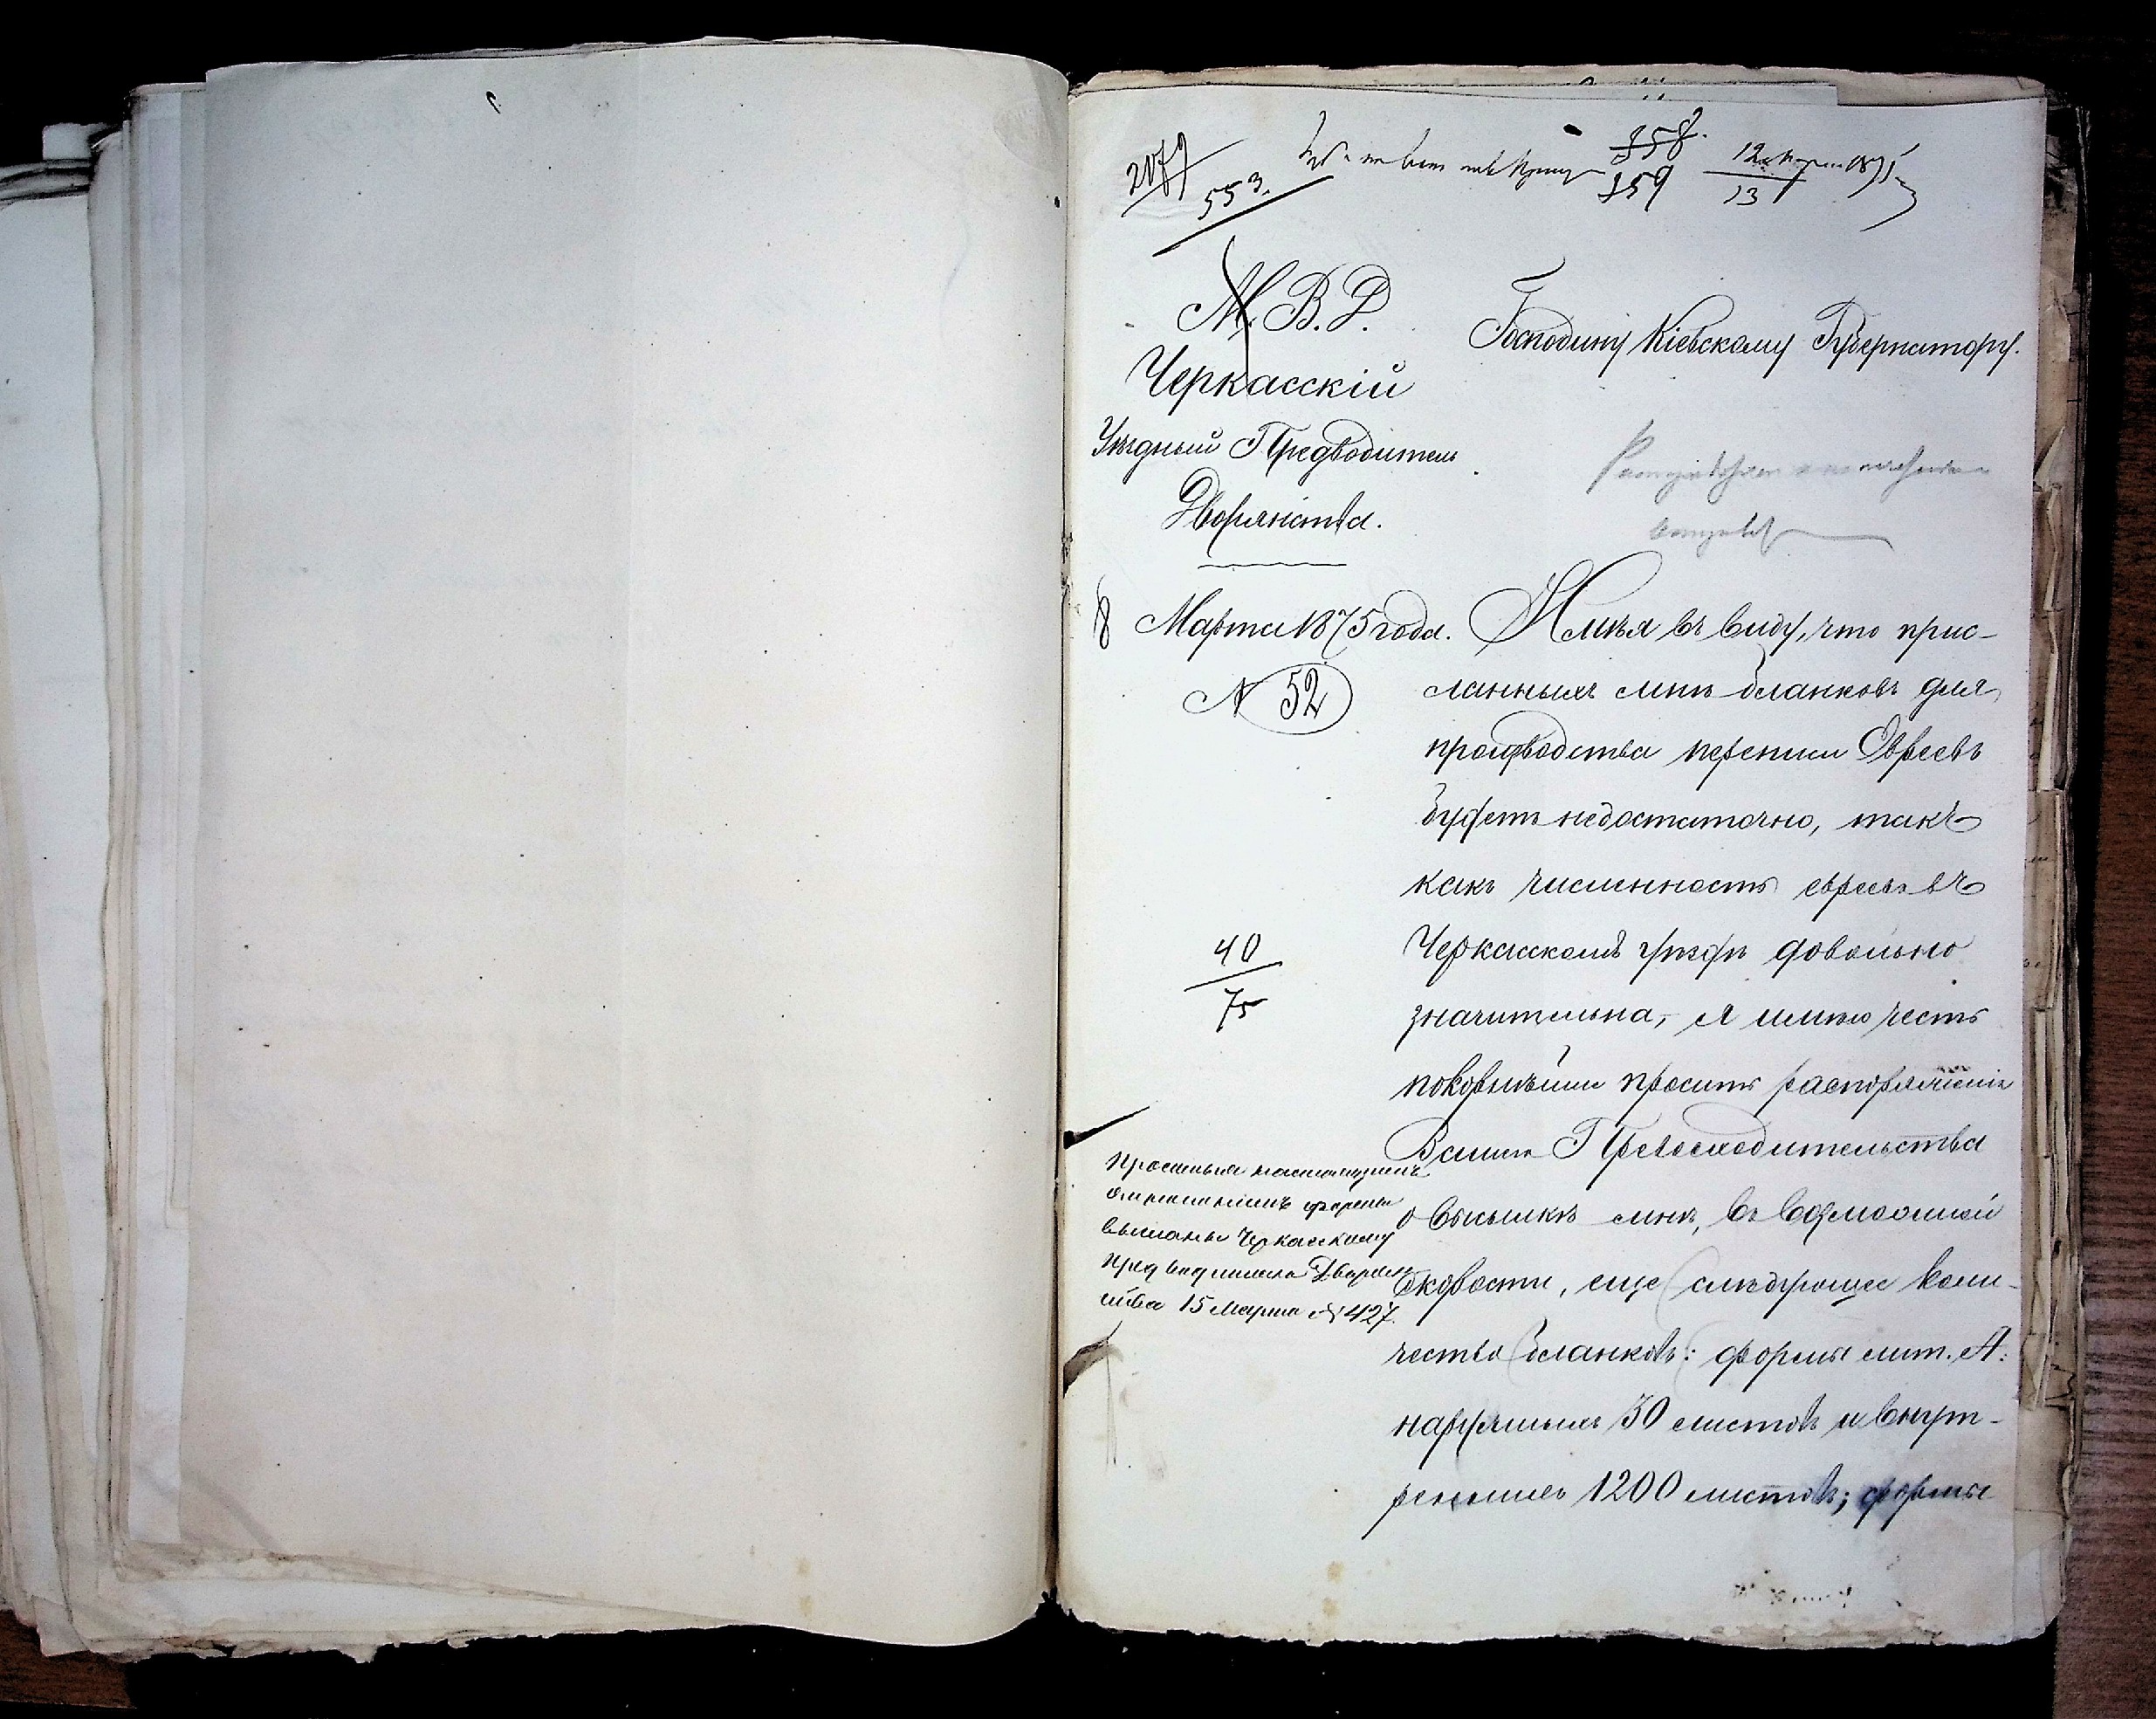 2079
553.
358.
359
12 Марта 1875
13
М. В. Д.
Черкасскій
Уѣздный Предводитель
Дворянства.
8 Марта 1875 года.
№ 52
40
75
Господину Кіевскому Губернатору.
Имѣя въ виду, что прис-
ланныхъ мнѣ бланковъ для
производства переписи Евреевъ
будетъ недостаточно, такъ
какъ численность евреевъ въ
Черкасскомъ уѣздѣ довольно
значительна, я имѣю честь
покорнѣйше просить распоряженія
Вашего Превосходительства
о высылкѣ мнѣ, въ возможной
скорости, еще слѣдующее коли-
чество бланковъ: формы лит. А:
наружныхъ 30 листовъ и внут-
реннихъ 1200 листовъ; формы
Просимыя настоящимъ
отношеніемъ формы
высланы Черкасскому
Предводителю Дворян-
ства 15 Марта № 427.